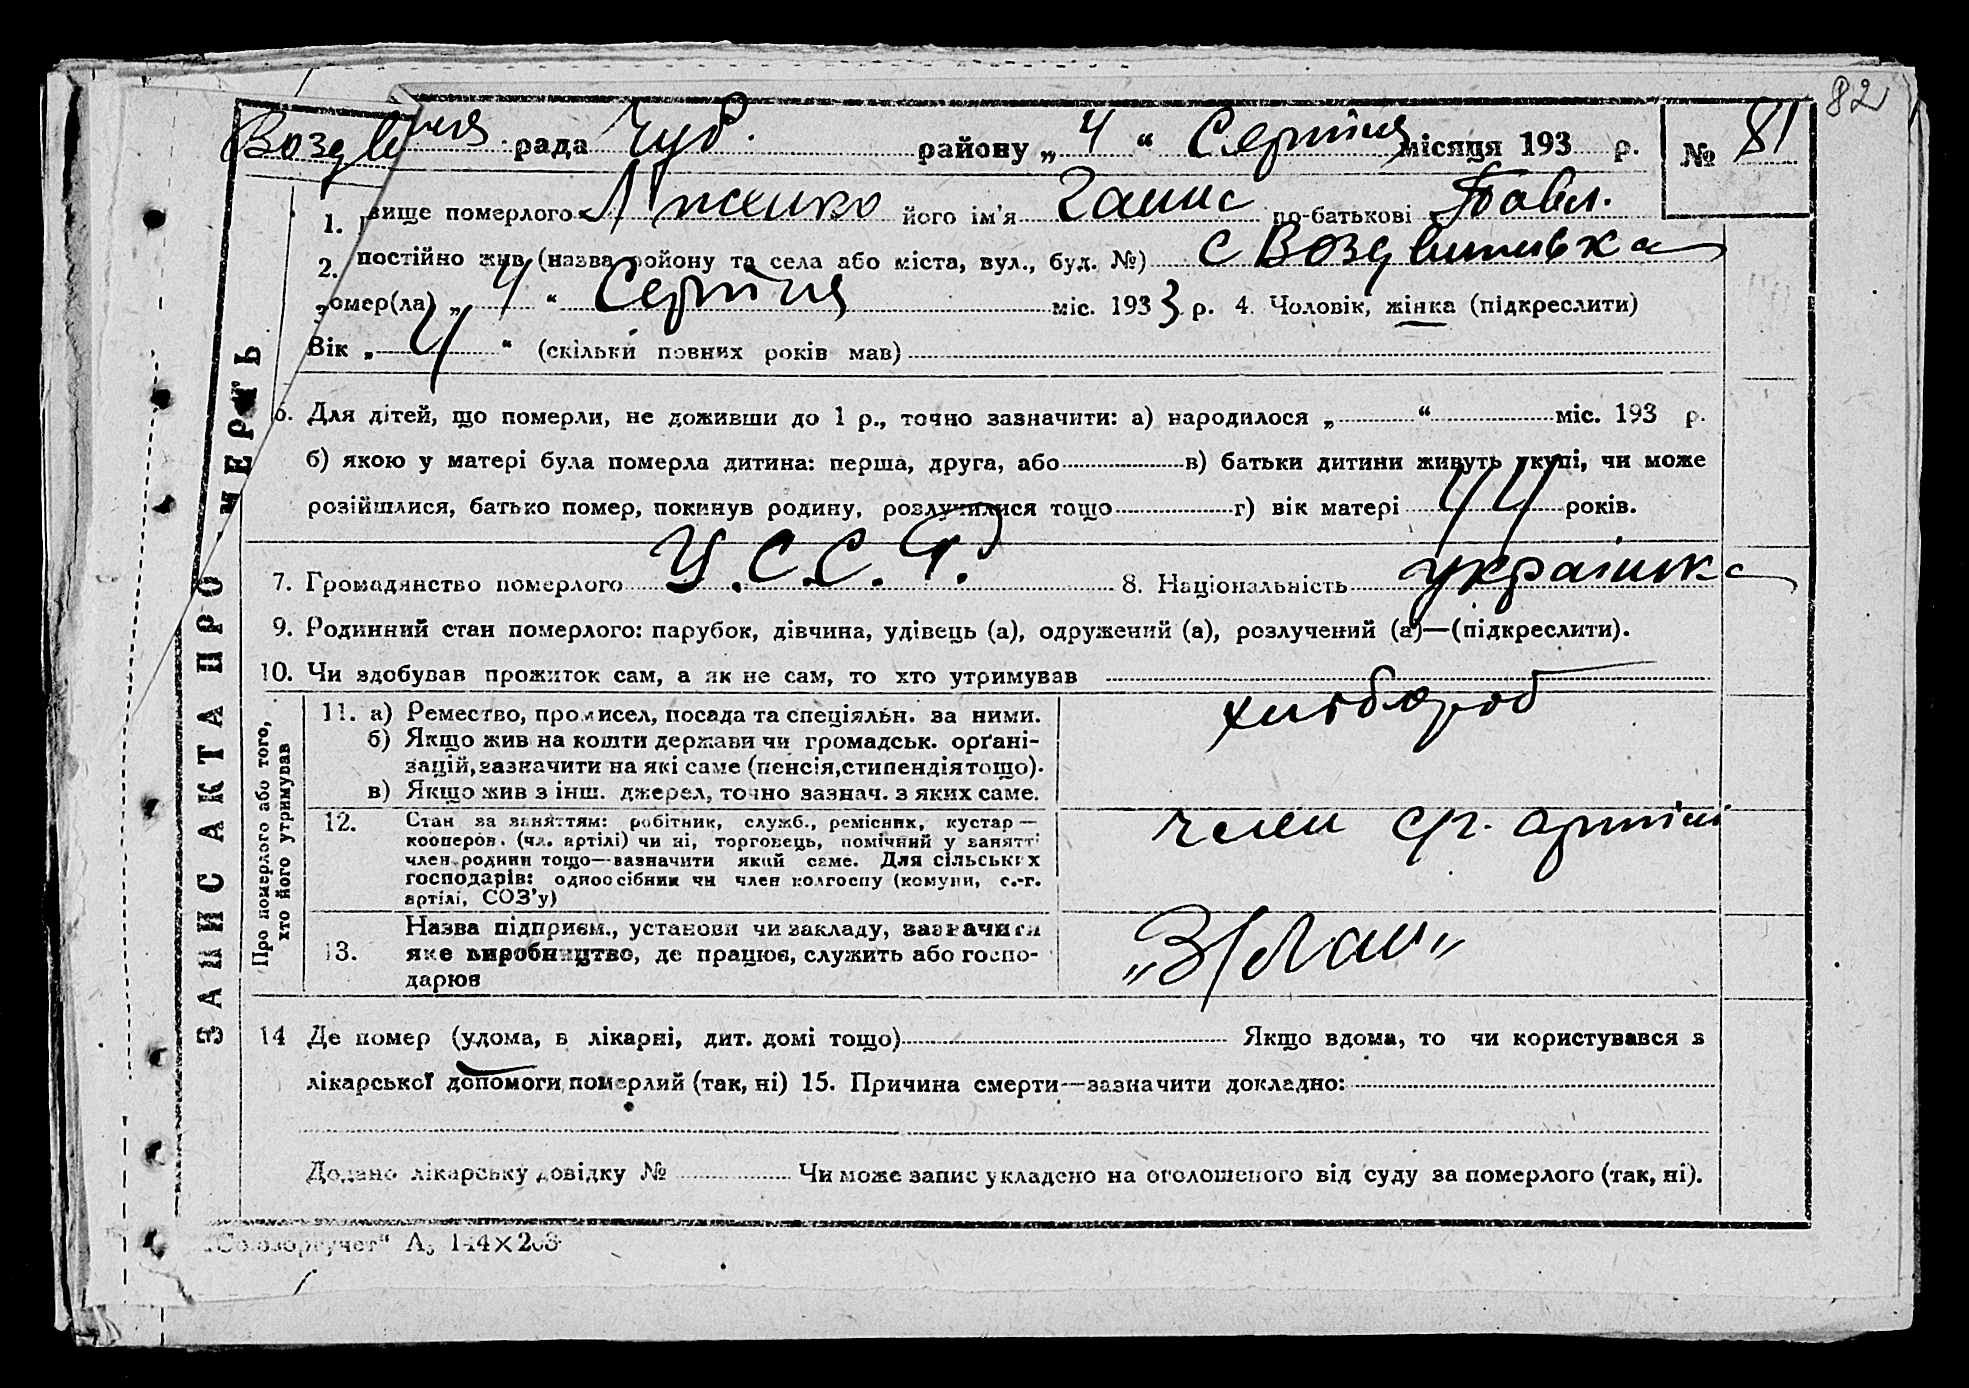 82
рада Чуб. району „ 4 “ Серпня місяця 193 р. № 81
1. вище померлого його ім’я по-батькові Павл.
2. постійно жив (назва району та села або міста, вул., буд. №) с Воздвижівка
омер(ла) „ 4 “ Серпня міс. 1933 р. 4. Чоловік, жінка (підкреслити)
Вік „ 4 “ (скільки повних років мав)
6. Для дітей, що померли, не доживши до 1 р., точно зазначити: а) народилося „ “ міс. 193 р.
б) якою у матері була померла дитина: перша, друга, або в) батьки дитини живуть вкупі, чи може
розійшлися, батько помер, покинув родину, розлучилися тощо г) вік матері 44 років.
7. Громадянство померлого У.С.С.Р. 8. Національність українка
9. Родинний стан померлого: парубок, дівчина, удівець (а), одружений (а), розлучений (а)—(підкреслити).
10. Чи здобував прожиток сам, а як не сам, то хто утримував
ЗАПИС АКТА ПРО
Про померлого або того, хто його утримував
11. а) Ремество, промисел, посада та спеціяльн. за ними. хлібороб
б) Якщо жив на кошти держави чи громадськ. орґані-
зацій, зазначити на які саме (пенсія, стипендія тощо).
в) Якщо жив з інш. джерел, точно зазнач. з яких саме.
12. Стан за заняттям: робітник, служб., ремісник, кустар —
кооперов. (чл. артілі) чи ні, торговець, помічний у занятті
член родини тощо—зазначити який саме. Для сільських
господарів: одноосібник чи член колгоспу (комуни, с.-г.
артілі, СОЗ’у)
член с/г. артілі
13. Назва підприєм., установи чи закладу, зазначити
яке виробництво, де працює, служить або госпо-
дарює
14 Де помер (удома, в лікарні, дит. домі тощо) Якщо вдома, то чи користувався з
лікарської допомоги померлий (так, ні) 15. Причина смерти—зазначити докладно:
Додано лікарську довідку № Чи може запис укладено на оголошеного від суду за померлого (так, ні).
„Союзоргучет“ А₅ 144×203